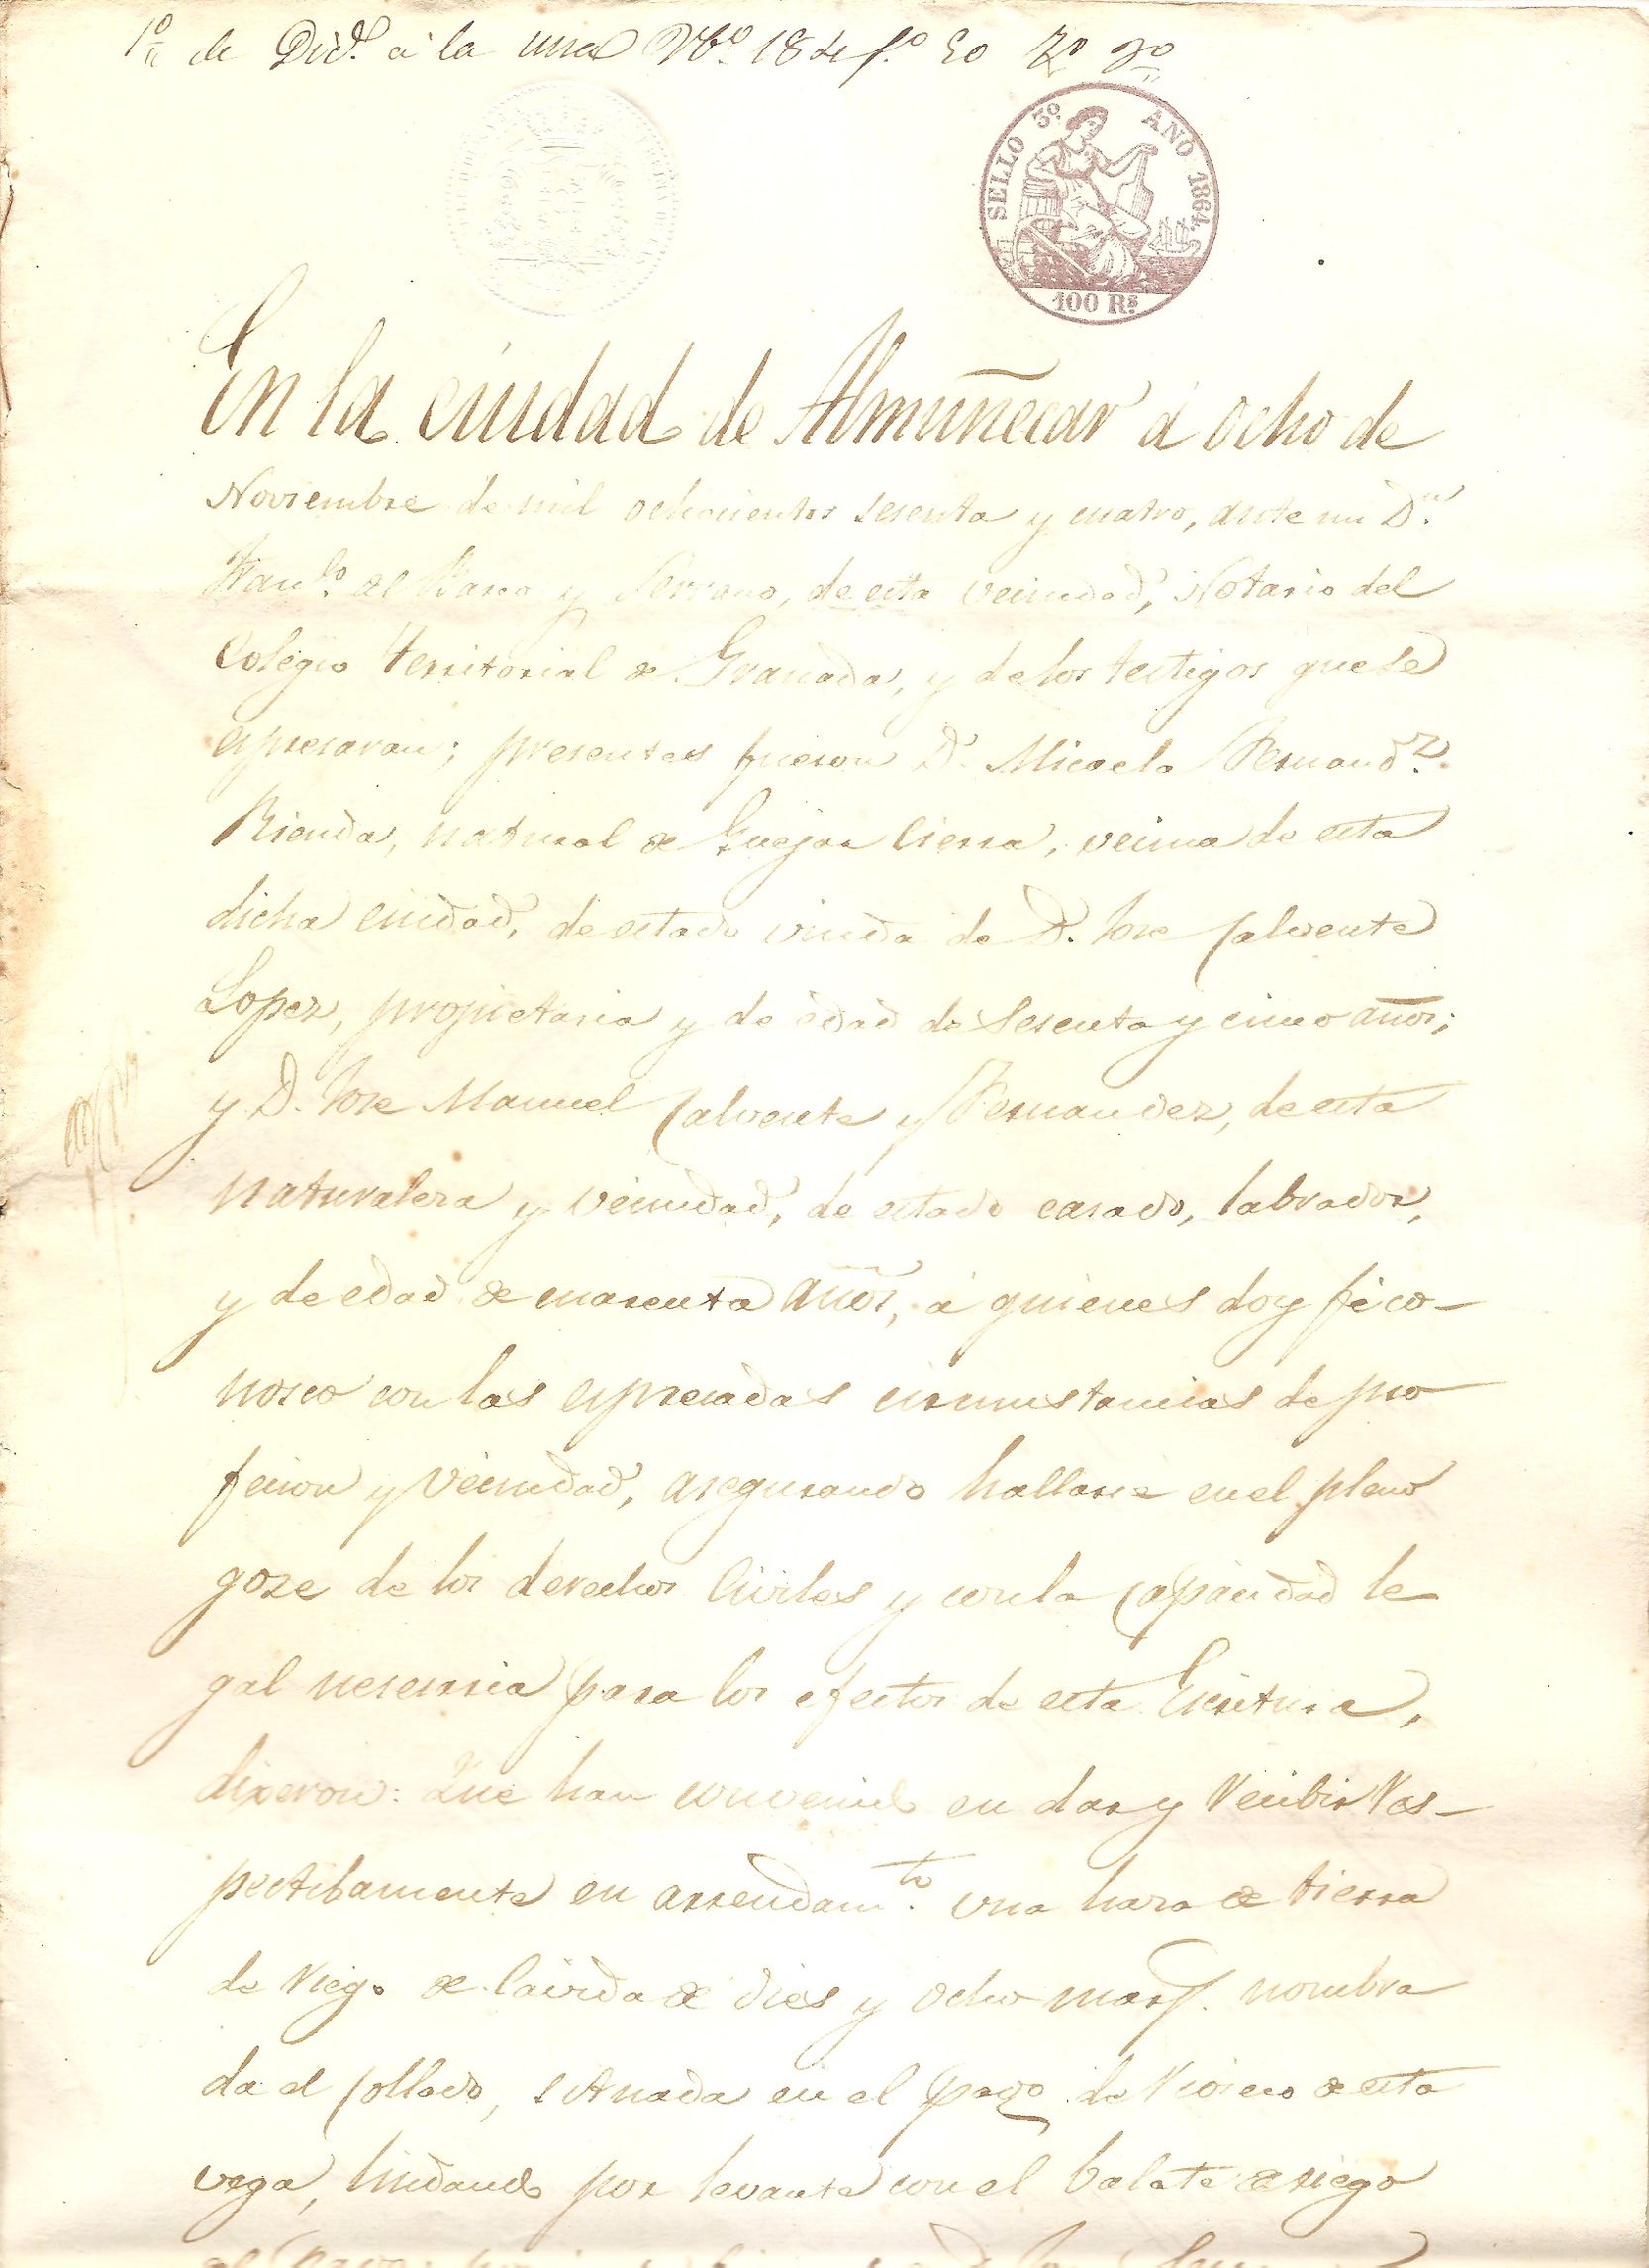 1º de Dic.e á la una Nº 184 fº 50
SELLO 3º AÑO 1864
100 Rs
En la ciudad de Almuñecar á ocho de
Noviembre de mil ochocientos sesenta y cuatro, ante mi Dn.
Franco. del Barco y Serrano, de esta vecindad, Notario del
Colegio territorial de Granada, y de los testigos que se
espresaran; presentes fueron Da. Micaela Fernandz.
Rienda, natural de Guejar Cierra, vecina de esta
dicha ciudad, de estado viuda de D. Jose Calvente
Lopez, propietaria y de edad de Sesenta y cinco años;
y D. Jose Manuel Calvente y Fernandez, de esta
naturaleza y vecindad, de estado casado, labrador,
y de edad de cuarenta años, á quienes doy fé co-
nosco con las espresadas circunstancias de pro
fecion y vecindad, asegurando hallarse en el pleno
goze de los derechos Civiles y con la capacidad le
gal nesesaria para los efectos de esta Escritura,
dixeron: Que han convenido en dar y recibir res-
pectibamente en arrendamto. una haza de tierra
de riego de cavida de dies y ocho marjs. nombra
da el Collado, situada en el pago de de esta
vega, lindando por levante con el balate de riego